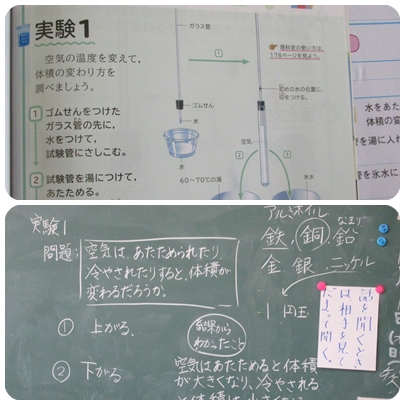 実験1
空気の温度を変えて、
体積の変わり方を
調べましょう。
1 ゴムせんをつけた
ガラス管の先に、
水をつけて、
試験管にさしこむ。
2 試験管を湯につけて、
あたためる。
ガラス管
1
ゴムせん
水
水
60～70℃の湯
理科室の使い方は、
178ページを見よう。
初めの水の位置に、
印をつける。
空気
2
3
氷水
水をあた
体積の
管を湯に入れ
管を氷水に
実験1
問題：空気は、あたためられたり
冷やされたりすると、体積が
変わるだろうか。
① 上がる。
② 下がる
アルミホイル
なまり
鉄、銅、鉛
金 銀 ニッケル
1円玉
結果から
わかったこと
空気はあたためると体積
が大きくなり、冷やされる
と体積は小さくなる
話を聞くとき
は相手を見て
だまって聞く。